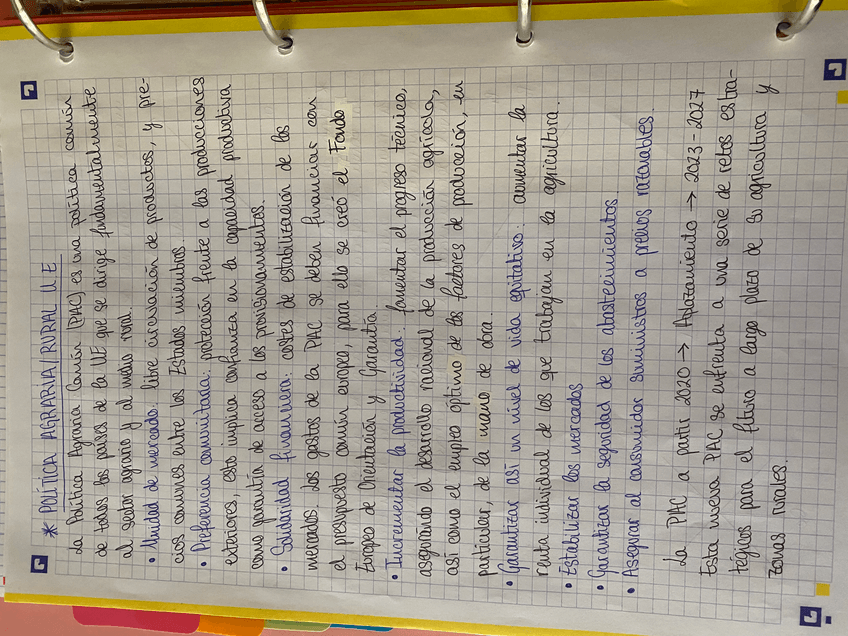 * POLÍTICA AGRARIA/RURAL U.E
La Política Agraria Común (PAC) es una política común
de todos los países de la UE que se dirige fundamentalmente
al sector agrario y al medio rural.
• Unidad de mercado: libre circulación de productos, y pre-
cios comunes entre los Estados miembros.
• Preferencia comunitaria: protección frente a las producciones
exteriores, esto implica confianza en la capacidad productiva
como garantía de acceso a los provisionamientos.
• Solidaridad financiera: costes de estabilización de los
mercados. Los gastos de la PAC se deben financiar con
el presupuesto común europeo, para ello se creó el Fondo
Europeo de Orientación y Garantía.
• Incrementar la productividad: fomentar el progreso técnico,
asegurando el desarrollo racional de la producción agrícola,
así como el empleo óptimo de los factores de producción, en
particular, de la mano de obra.
• Garantizar así un nivel de vida equitativo: aumentar la
renta individual de los que trabajan en la agricultura.
• Estabilizar los mercados
• Garantizar la seguridad de los abastecimientos.
• Asegurar al consumidor suministros a precios razonables.
La PAC a partir 2020 → Aplazamiento → 2023-2027
Esta nueva PAC se enfrenta a una serie de retos estra-
tégicos para el futuro a largo plazo de su agricultura y
zonas rurales.